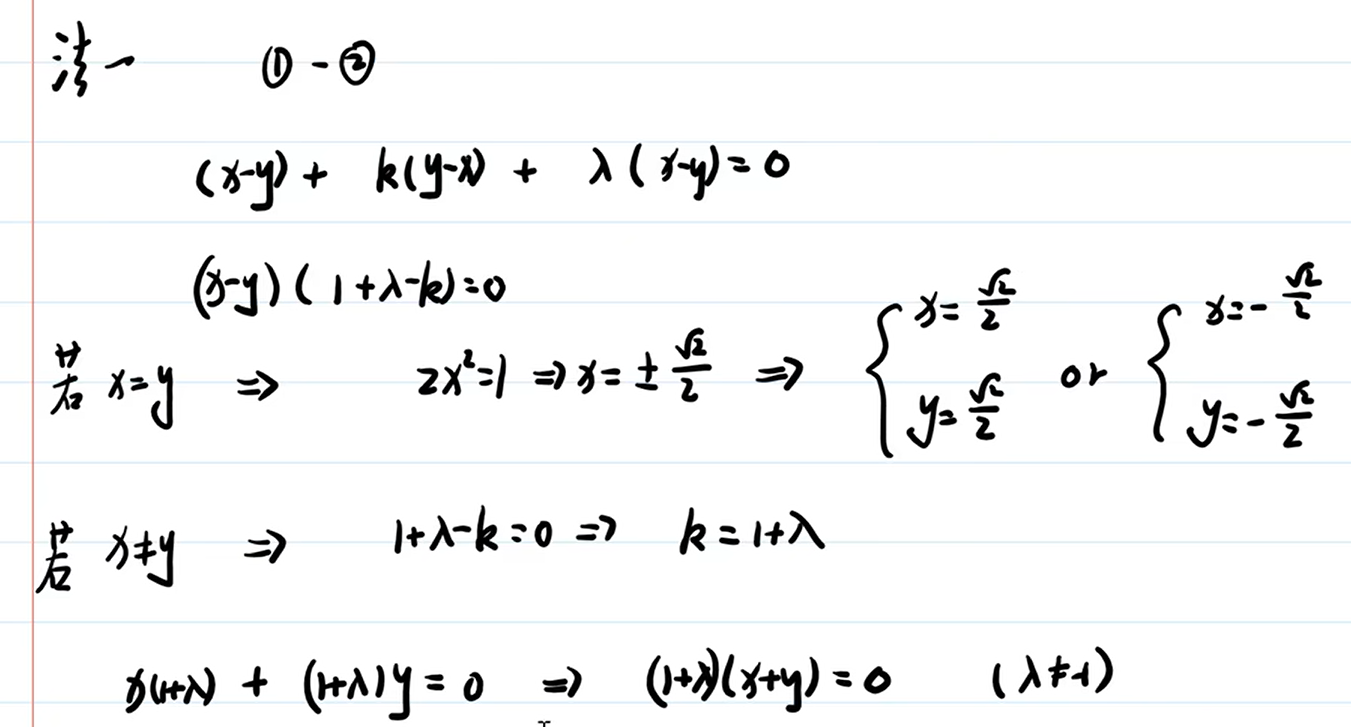 法一 ① - ②
(x-y) + k(y-x) + λ(x-y) = 0
(x-y)(1+λ-k)=0
若 x=y ⇒ 2x²=1 ⇒ x = ± √2/2 ⇒ { x = √2/2, y = √2/2 or { x = - √2/2, y = - √2/2
若 x≠y ⇒ 1+λ-k=0 ⇒ k = 1+λ
x(1+λ) + (1+λ)y = 0 ⇒ (1+λ)(x+y) = 0 (λ≠-1)